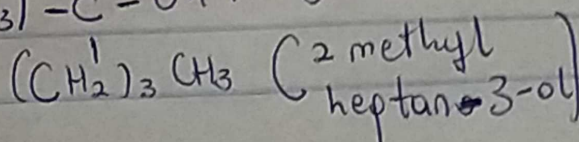 3) -C-
(CH2)3 CH3 (2 methyl
heptan-3-ol)